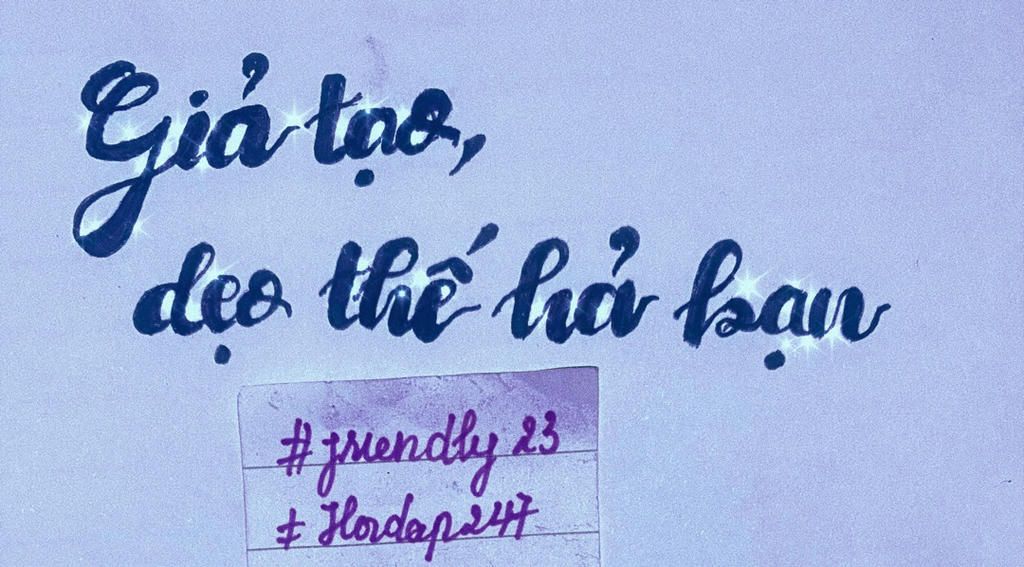 Giả tạo,
dẹo thế hả bạn
# friendly 23
# Hoidap247